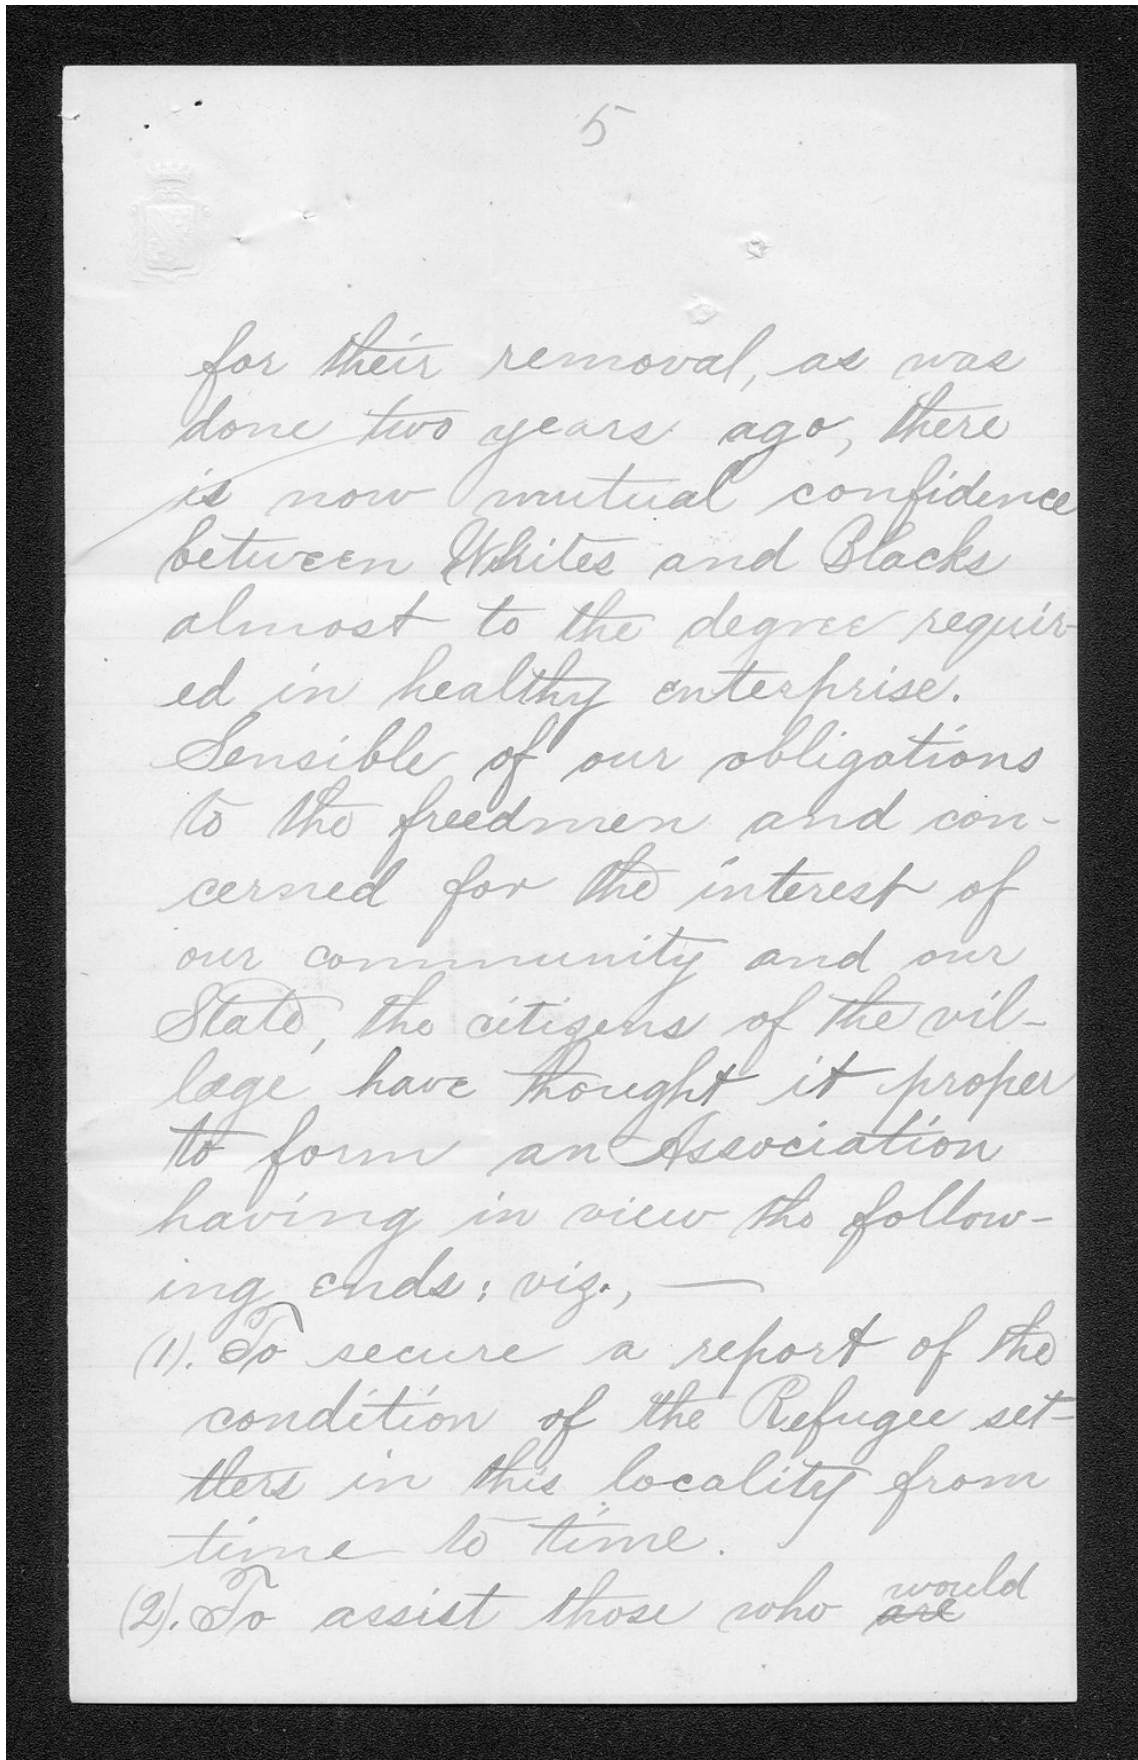 5
for their removal, as was
done two years ago, there
is now mutual confidence
between Whites and Blacks
almost to the degree requir-
ed in healthy enterprise.
Sensible of our obligations
to the freedmen and con-
cerned for the interest of
our community and our
State, the citizens of the vil-
lage have thought it proper
to form an Association
having in view the follow-
ing ends: viz., —
(1). To secure a report of the
condition of the Refugee set-
tlers in this locality from
time to time.
would
(2). To assist those who are